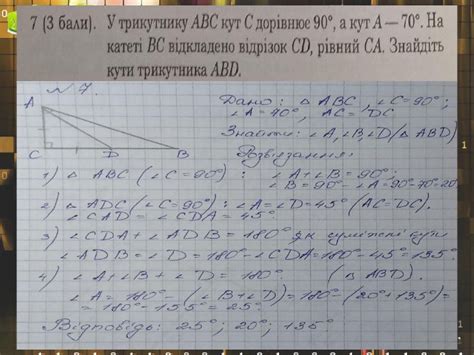 7 (3 бали). У трикутнику ABC кут C дорівнює 90°, а кут A — 70°. На
катеті BC відкладено відрізок CD, рівний CA. Знайдіть
кути трикутника ABD.
№ 7.
A
C D B
Дано: △ ABC, ∠C=90°;
∠A=70°, AC = DC
Знайти: ∠A, ∠B, ∠D (△ ABD)
Розв'язання:
1) △ ABC (∠C=90°) : ∠A+∠B = 90°;
∠B = 90°- ∠A = 90°-70°=20°.
2) △ ADC (∠C=90°) : ∠A=∠D=45° (AC=DC).
∠CAD = ∠CDA = 45°
3) ∠CDA + ∠ADB = 180° як суміжні кути
∠ADB = ∠D = 180° - ∠CDA = 180°- 45° = 135°
4) ∠A + ∠B + ∠D = 180° (△ ABD).
∠A = 180° - (∠B + ∠D) = 180° - (20°+135°) =
= 180° - 155° = 25°
Відповідь: 25°; 20°; 135°